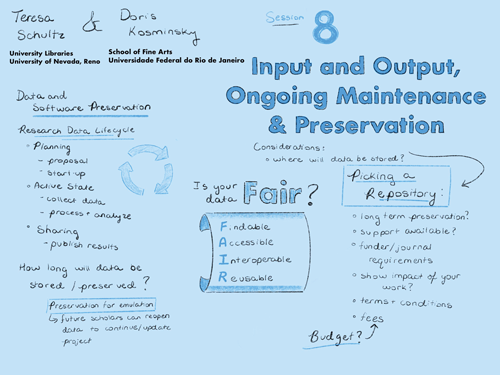 Teresa Schultz
&
Doris Kosminsky
University Libraries
University of Nevada, Reno
School of Fine Arts
Universidade Federal do Rio de Janeiro
Session 8
Input and Output,
Ongoing Maintenance
& Preservation
Data and
Software Preservation
Research Data Lifecycle
Planning
- proposal
- start-up
Active State
- collect data
- process + analyze
Sharing
- publish results
How long will data be
stored / preserved?
Preservation for emulation
↳ future scholars can reopen
data to continue/update
project
Is your
data Fair?
Findable
Accessible
Interoperable
Reusable
Considerations:
where will data be stored?
Picking a
Repository:
long term preservation?
support available?
funder/journal
requirements
show impact of your
work?
terms + conditions
fees
Budget?